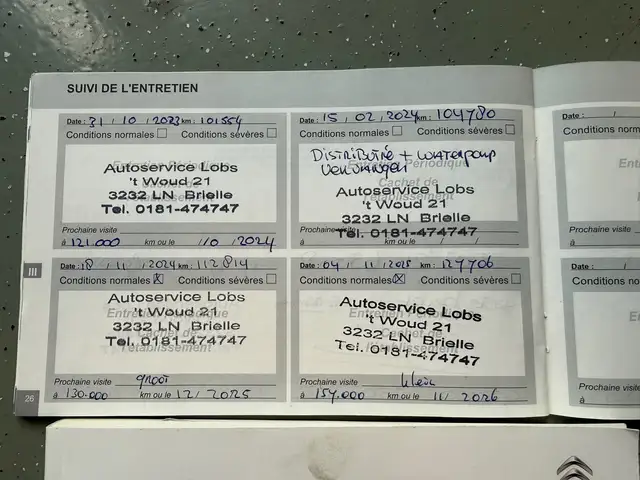 SUIVI DE L'ENTRETIEN
Date : 31 / 10 / 2023 km : 101554
Conditions normales Conditions sévères
Entretien Périodique
Cachet de
l'établissement
Autoservice Lobs
't Woud 21
3232 LN Brielle
Tel. 0181-474747
Prochaine visite
à 121.000 km ou le /10 / 2024
Date : 15 / 02 / 2024 km : 104780
Conditions normales Conditions sévères
DISTRIBUTIE + WATERPOMP
VERVANGEN
Entretien Périodique
Cachet de
l'établissement
Autoservice Lobs
't Woud 21
3232 LN Brielle
Tel. 0181-474747
Prochaine visite
à km ou le / /
Date : 18 / 11 / 2024 km : 112814
Conditions normales X Conditions sévères
Entretien Périodique
Cachet de
l'établissement
Autoservice Lobs
't Woud 21
3232 LN Brielle
Tel. 0181-474747
Prochaine visite groot
à 130.000 km ou le 12 / 2025
Date : 04 / 11 / 2025 km : 127706
Conditions normales X Conditions sévères
Entretien Périodique
Cachet de
l'établissement
Autoservice Lobs
't Woud 21
3232 LN Brielle
Tel. 0181-474747
Prochaine visite klein
à 157.000 km ou le 11 / 2026
Date : /
Conditions
Prochaine
à
Date : /
Conditions norm
Prochaine vis
à
III
26